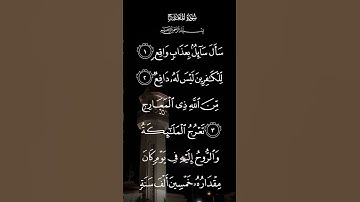 سُورَةُ المَعَارِجِ
بِسْمِ اللَّهِ الرَّحْمَٰنِ الرَّحِيمِ
سَأَلَ سَآئِلُۢ بِعَذَابٖ وَاقِعٖ ١
لِّلۡكَٰفِرِينَ لَيۡسَ لَهُۥ دَافِعٞ ٢
مِّنَ ٱللَّهِ ذِي ٱلۡمَعَارِجِ
٣ تَعۡرُجُ ٱلۡمَلَٰٓئِكَةُ
وَٱلرُّوحُ إِلَيۡهِ فِي يَوۡمٖ كَانَ
مِقۡدَارُهُۥ خَمۡسِينَ أَلۡفَ سَنَةٖ